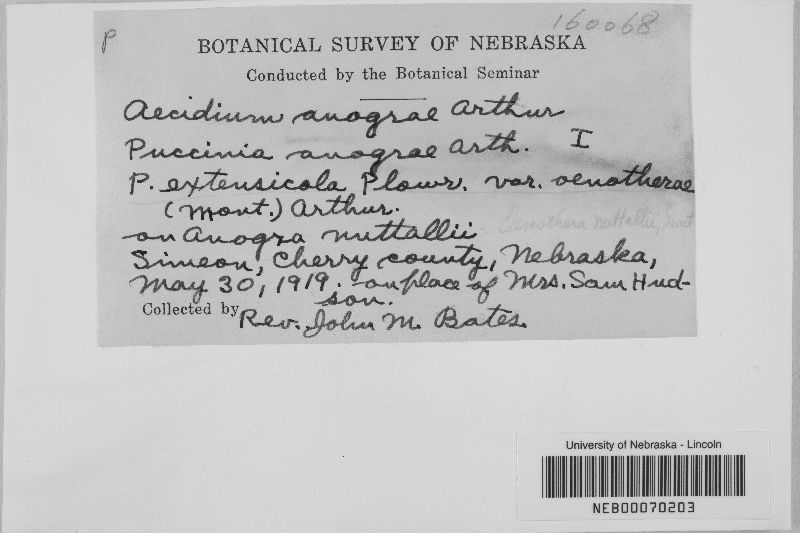 P
160068
BOTANICAL SURVEY OF NEBRASKA
Conducted by the Botanical Seminar
Aecidium anograe Arthur
Puccinia anograe Arth. I
P. extensicola Plowr. var. oenotherae
(Mont.) Arthur.
Oenothera nuttallii Sweet
on Anogra nuttallii
Simeon, Cherry county, Nebraska,
May 30, 1919. on place of Mrs. Sam Hud-
son.
Collected by Rev. John M. Bates.
University of Nebraska - Lincoln
NEB00070203